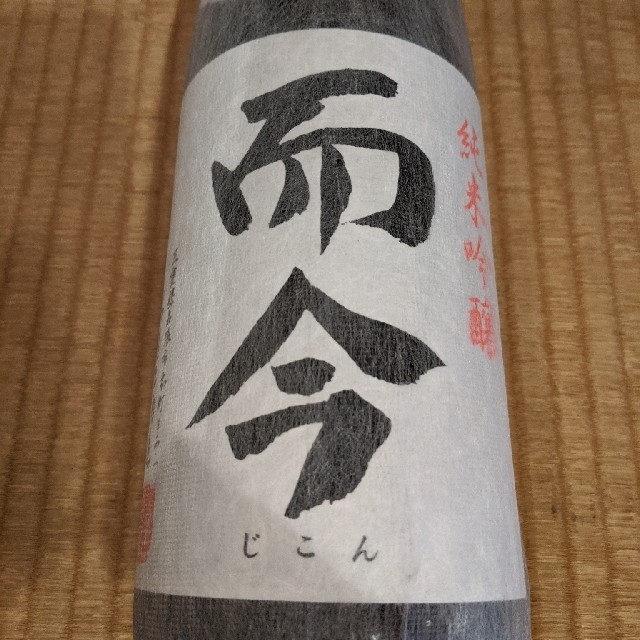 純米吟醸
而今
じこん